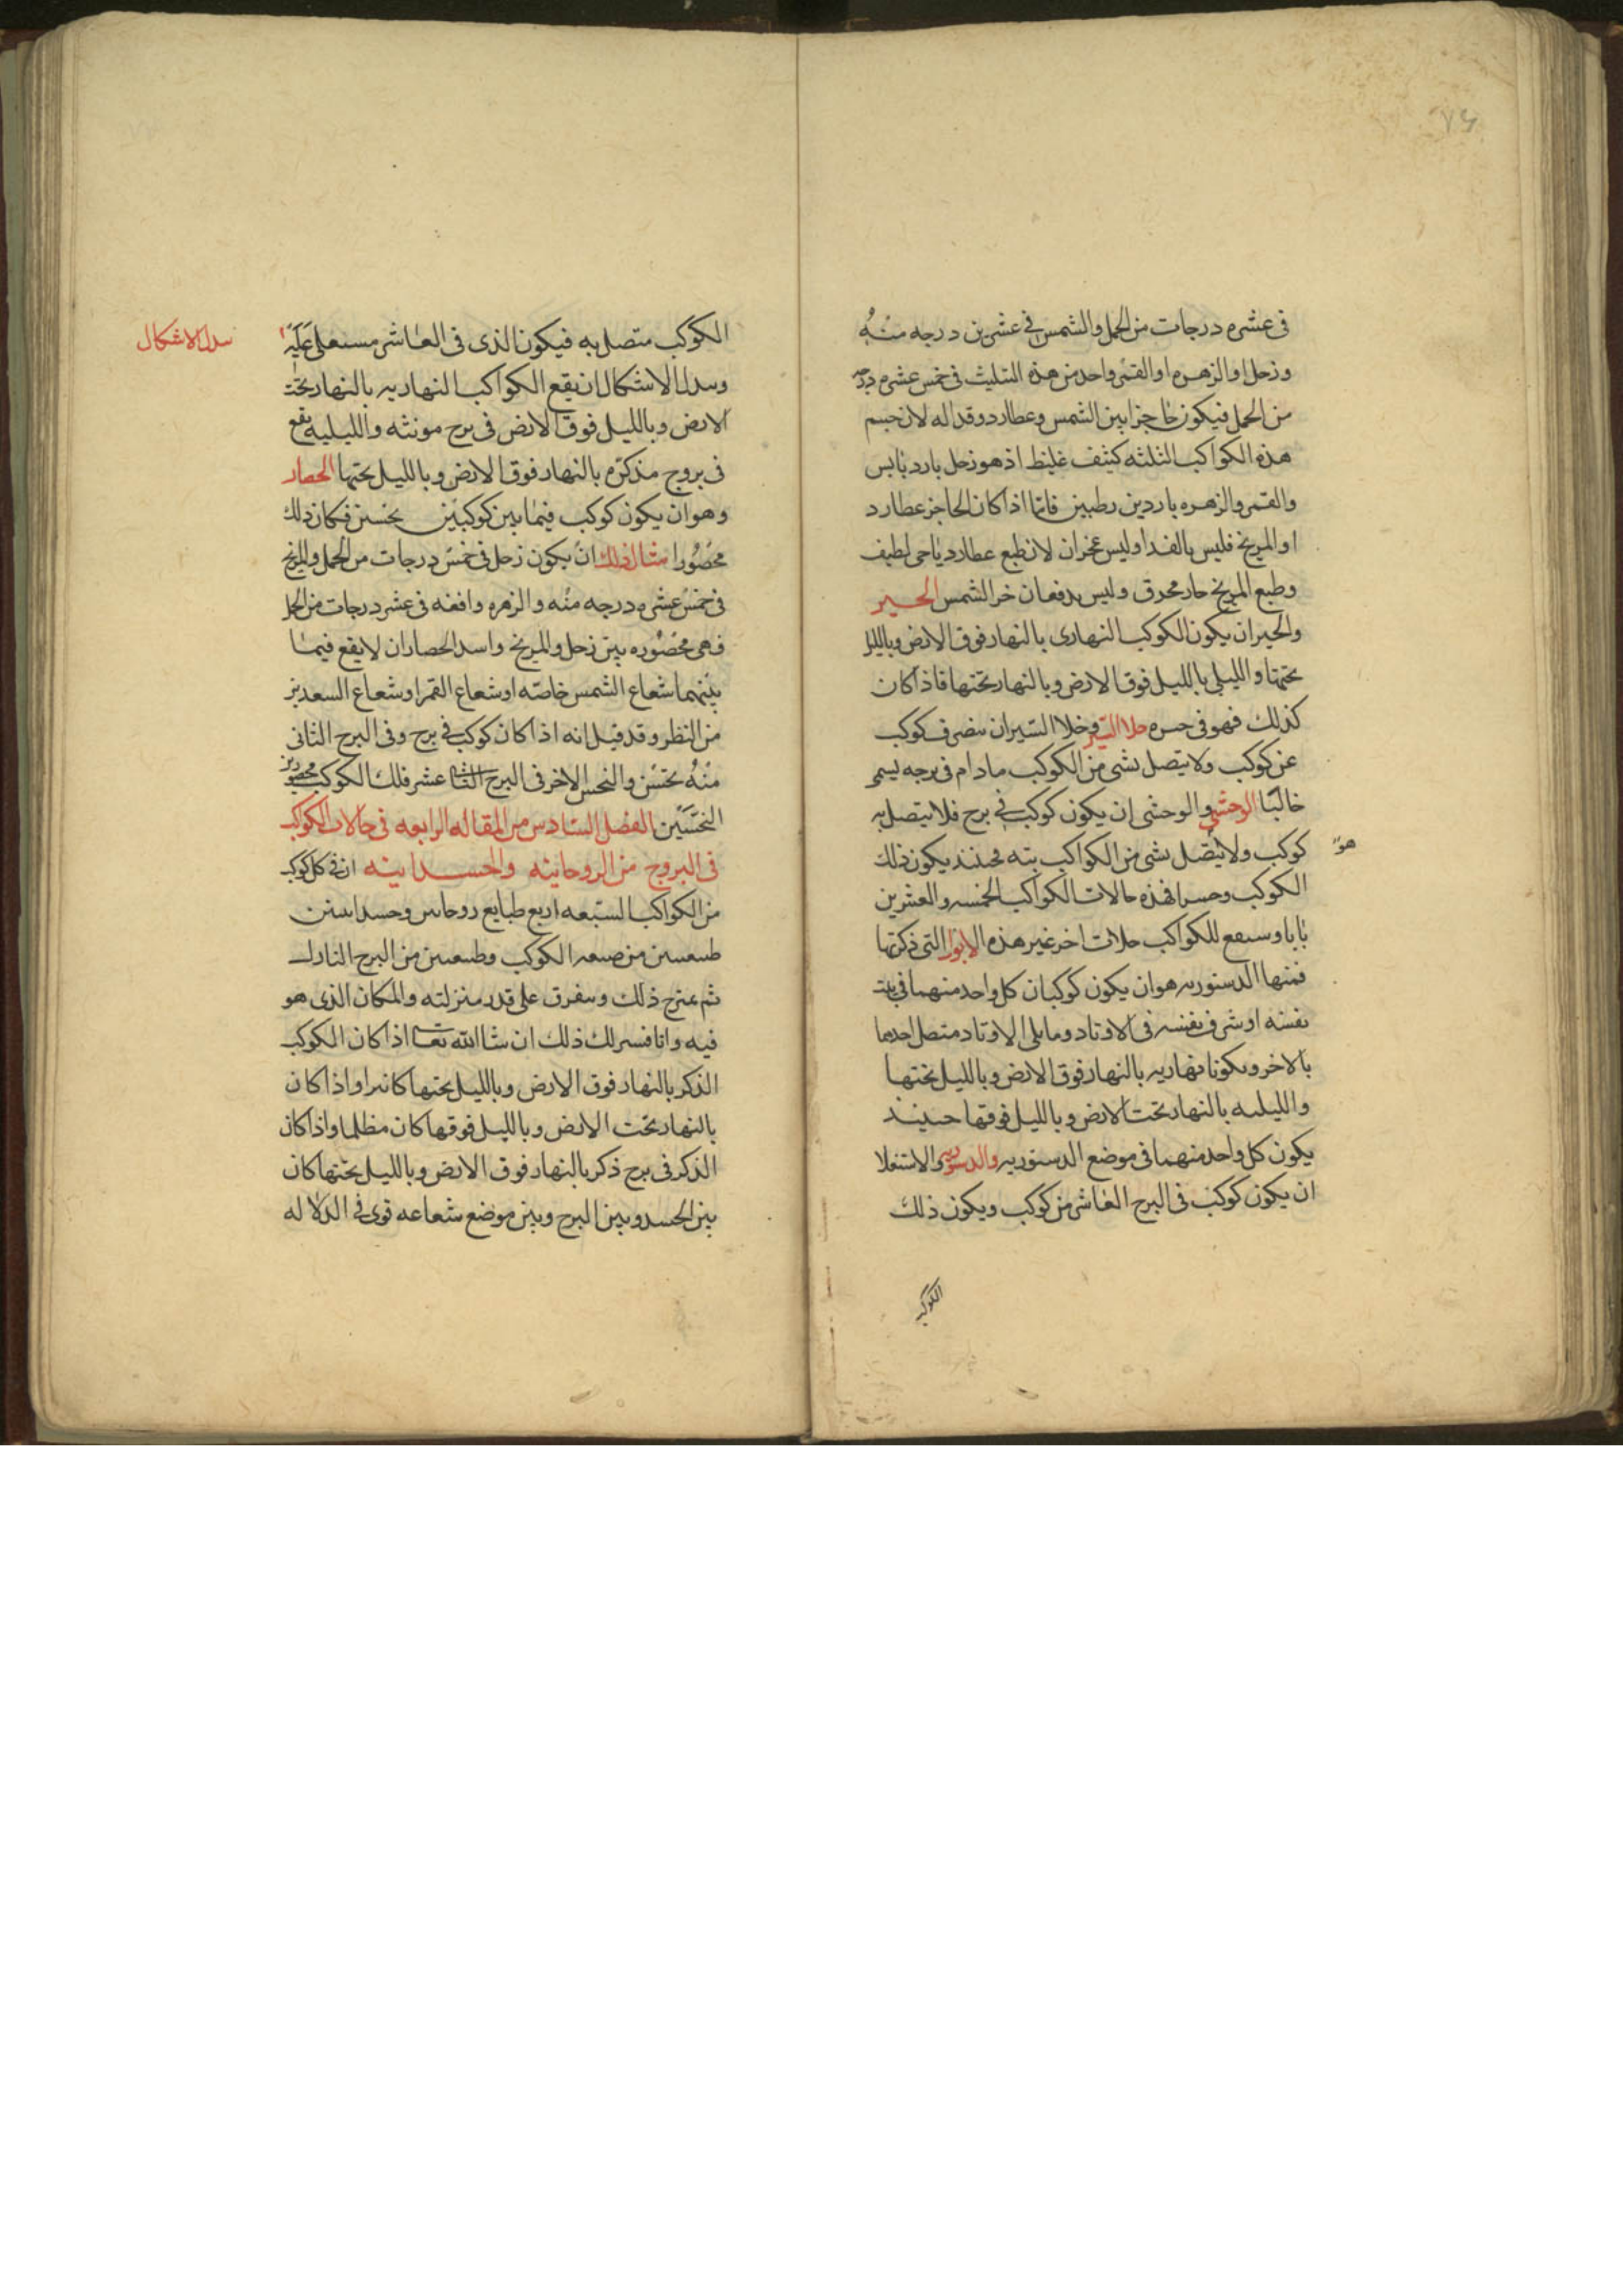 ٧٤
في عشره درجات من الحمل والشمس في عشرين درجه منه
وزحل او الزهره او القمر واحد من هذه الثليث في خمس عشره درجه
من الحمل فيكون حاجزا بين الشمس وعطارد وقد اله لان جسم
هذه الكواكب الثلثه كثيف غليظ اذ هو زحل بارد يابس
والقمر والزهره باردين رطبين فاما اذا كان الحاجز عطارد
او المريخ فليس بالفدا وليس عجزان لان طبع عطارد رياحي لطيف
وطبع المريخ حار محرق وليس يدفعان حر الشمس الحيز
والحيز ان يكون الكوكب النهارى بالنهار فوق الارض وبالليل
تحتها والليلى بالليل فوق الارض وبالنهار تحتها فاذا كان
كذلك فهو في حيزه خلا السير وخلا السير ان ينصرف كوكب
عن كوكب ولا يتصل بشى من الكوكب مادام في برجه يسمى
خاليا الوحشي والوحشى ان يكون كوكب في برج فلا يتصل به
هو
كوكب ولا يتصل بشى من الكواكب بته فحينئذ يكون ذلك
الكوكب وحسيا فهذه حالات الكواكب الخمسه والعشرين
بابا وسيقع للكواكب حلات اخر غير هذه الابواب التى ذكرتها
فمنها الدستوريه هو ان يكون كوكبان كل واحد منهما في بيت
نفسه او شرف نفسه في الاوتاد وما يلى الاوتاد متصل احدهما
بالاخر ويكونا نهاريه بالنهار فوق الارض وبالليل تحتها
والليليه بالنهار تحت الارض وبالليل فوقها حينيد
يكون كل واحد منهما في موضع الدستوريه والدستوريه والاستعلا
ان يكون كوكب في البرج العاشر من كوكب ويكون ذلك
الكوكب
الكوكب متصل به فيكون الذى في العاشر مستعلى عليه
سدل الاشكال
وسدل الاشكال ان يقع الكواكب النهاريه بالنهار تحت
الارض وبالليل فوق الارض في برج مونثه والليليه يقع
في بروج مذكره بالنهار فوق الارض وبالليل تحتها الحصار
وهو ان يكون كوكب فيما بين كوكبين نحسين فكان ذلك
محصورا مثال ذلك ان يكون زحل في خمس درجات من الحمل والمريخ
في خمس عشره درجه منه والزهره واقفه في عشر درجات من الحمل
فهى محصوره بين زحل والمريخ واسد الحصار ان لا يقع فيما
بينهما شعاع الشمس خاصه او شعاع القمر او شعاع السعدين
من النظر وقد قيل انه اذا كان كوكب في برج وفي البرج الثانى
منه نحس والنحس الاخر في البرج الثانى عشر فلك الكوكب محصور بين
النحسين الفصل السادس من المقاله الرابعه في حالات الكواكب
في البروج من الروحانيه والجسدانيه ان في كل كوكب
من الكواكب السبعه اربع طبايع روحاس وجسداسن
طبيعتين من طبيعه الكوكب وطبيعتين من البرج النازل
ثم يمتزج ذلك ويفرق على قدر منزلته والمكان الذى هو
فيه وانا افسر لك ذلك ان شا الله تعا اذا كان الكوكب
الذكر بالنهار فوق الارض وبالليل تحتها كان نيرا واذا كان
بالنهار تحت الارض وبالليل فوقها كان مظلما واذا كان
الذكر في برج ذكر بالنهار فوق الارض وبالليل تحتها كان
بين الجسد وبين البرج وبين موضع شعاعه قوى في الدلاله